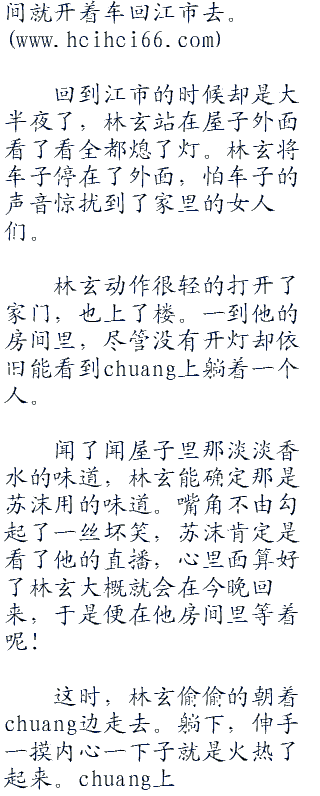 间就开着车回江市去。
(www.hcihci66.com)
回到江市的时候却是大
半夜了，林玄站在屋子外面
看了看全都熄了灯。林玄将
车子停在了外面，怕车子的
声音惊扰到了家里的女人
们。
林玄动作很轻的打开了
家门，也上了楼。一到他的
房间里，尽管没有开灯却依
旧能看到chuang上躺着一个
人。
闻了闻屋子里那淡淡香
水的味道，林玄能确定那是
苏沫用的味道。嘴角不由勾
起了一丝坏笑，苏沫肯定是
看了他的直播，心里面算好
了林玄大概就会在今晚回
来，于是便在他房间里等着
呢！
这时，林玄偷偷的朝着
chuang边走去。躺下，伸手
一摸内心一下子就是火热了
起来。chuang上